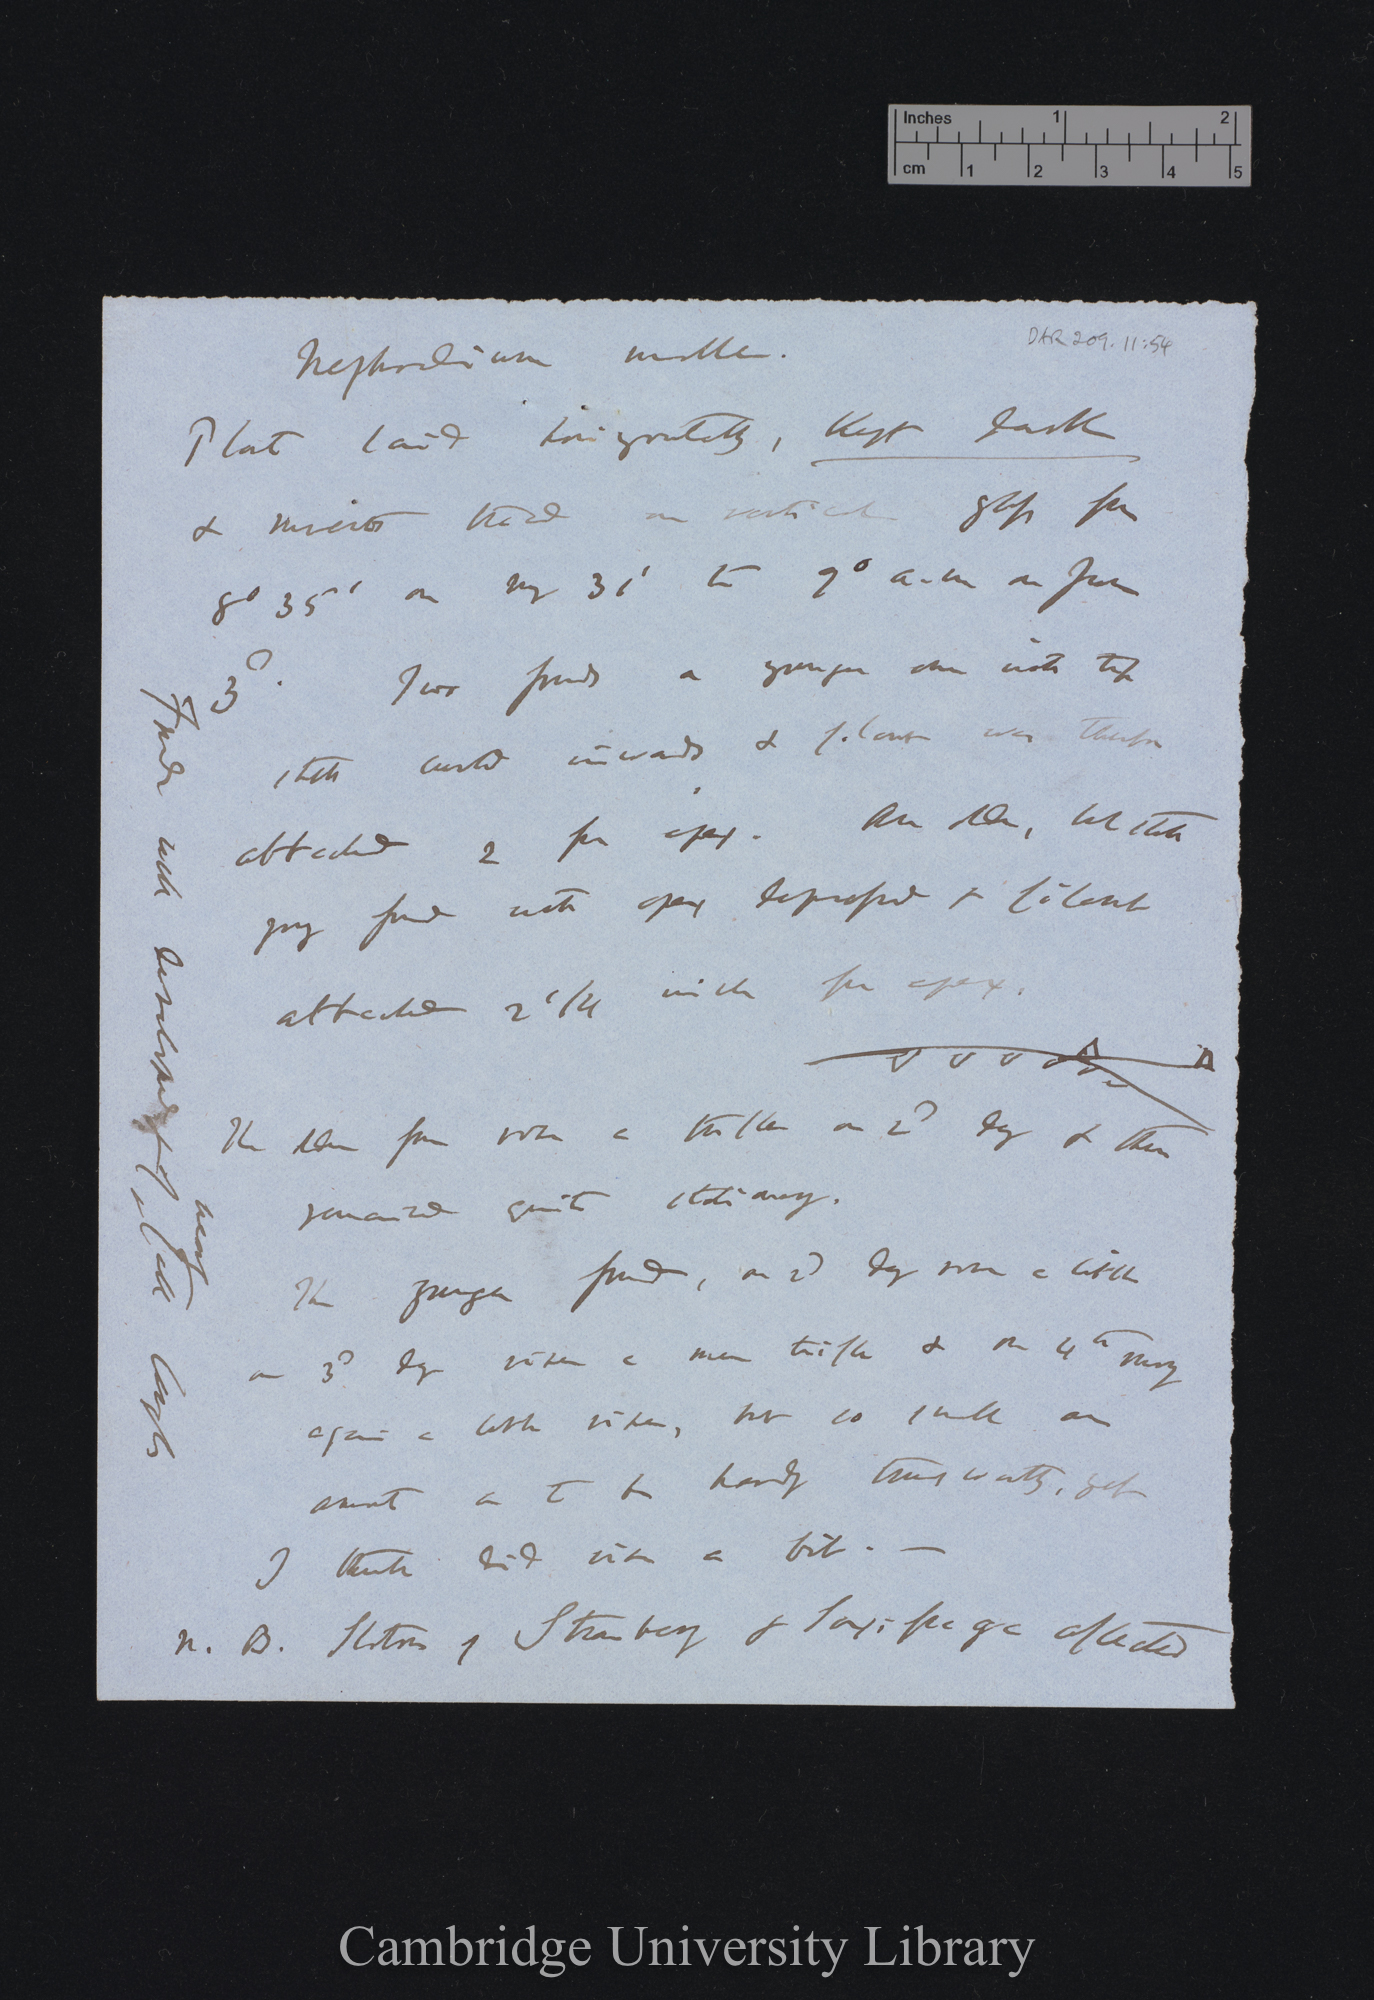 Inches 1 2
cm 1 2 3 4 5
DAR 209.11:54
Nephrodium molle.
Plant laid horizontally, Kept dark
& movements traced on vertical glass from
8° 35' on May 31' to 9° a.m on June
3d. Two fronds a younger one with tip
still curled inwards & filament was therefore
attached 2 from apex. An older, but still
young frond with apex depressed & filament
attached 2 1/4 inch from apex.
The older frond rose a trifle on 2d day & then
remained quite stationary.
The younger frond, on 2d day rose a little
on 3d day risen a mere trifle & on 4th morng
again a little risen, but so small an
amount as to be hardly trustworthy, yet
I think did rise a bit. —
N. B. Stolons of Strawberry & Saxifrage affected
Fronds well developed of nearly full length
Cambridge University Library